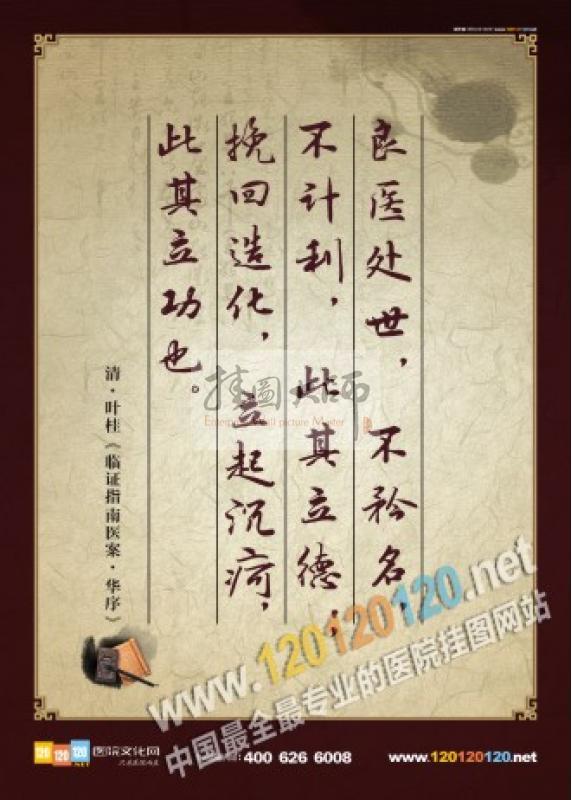 良医处世，不矜名，
不计利，此其立德；
挽回造化，立起沉疴，
此其立功也。
清·叶桂《临证指南医案·华序》
挂图大师
www.120120120.net
中国最全最专业的医院挂图网站
120 120 120 .NET
医院文化网
400 626 6008
www.120120120.net